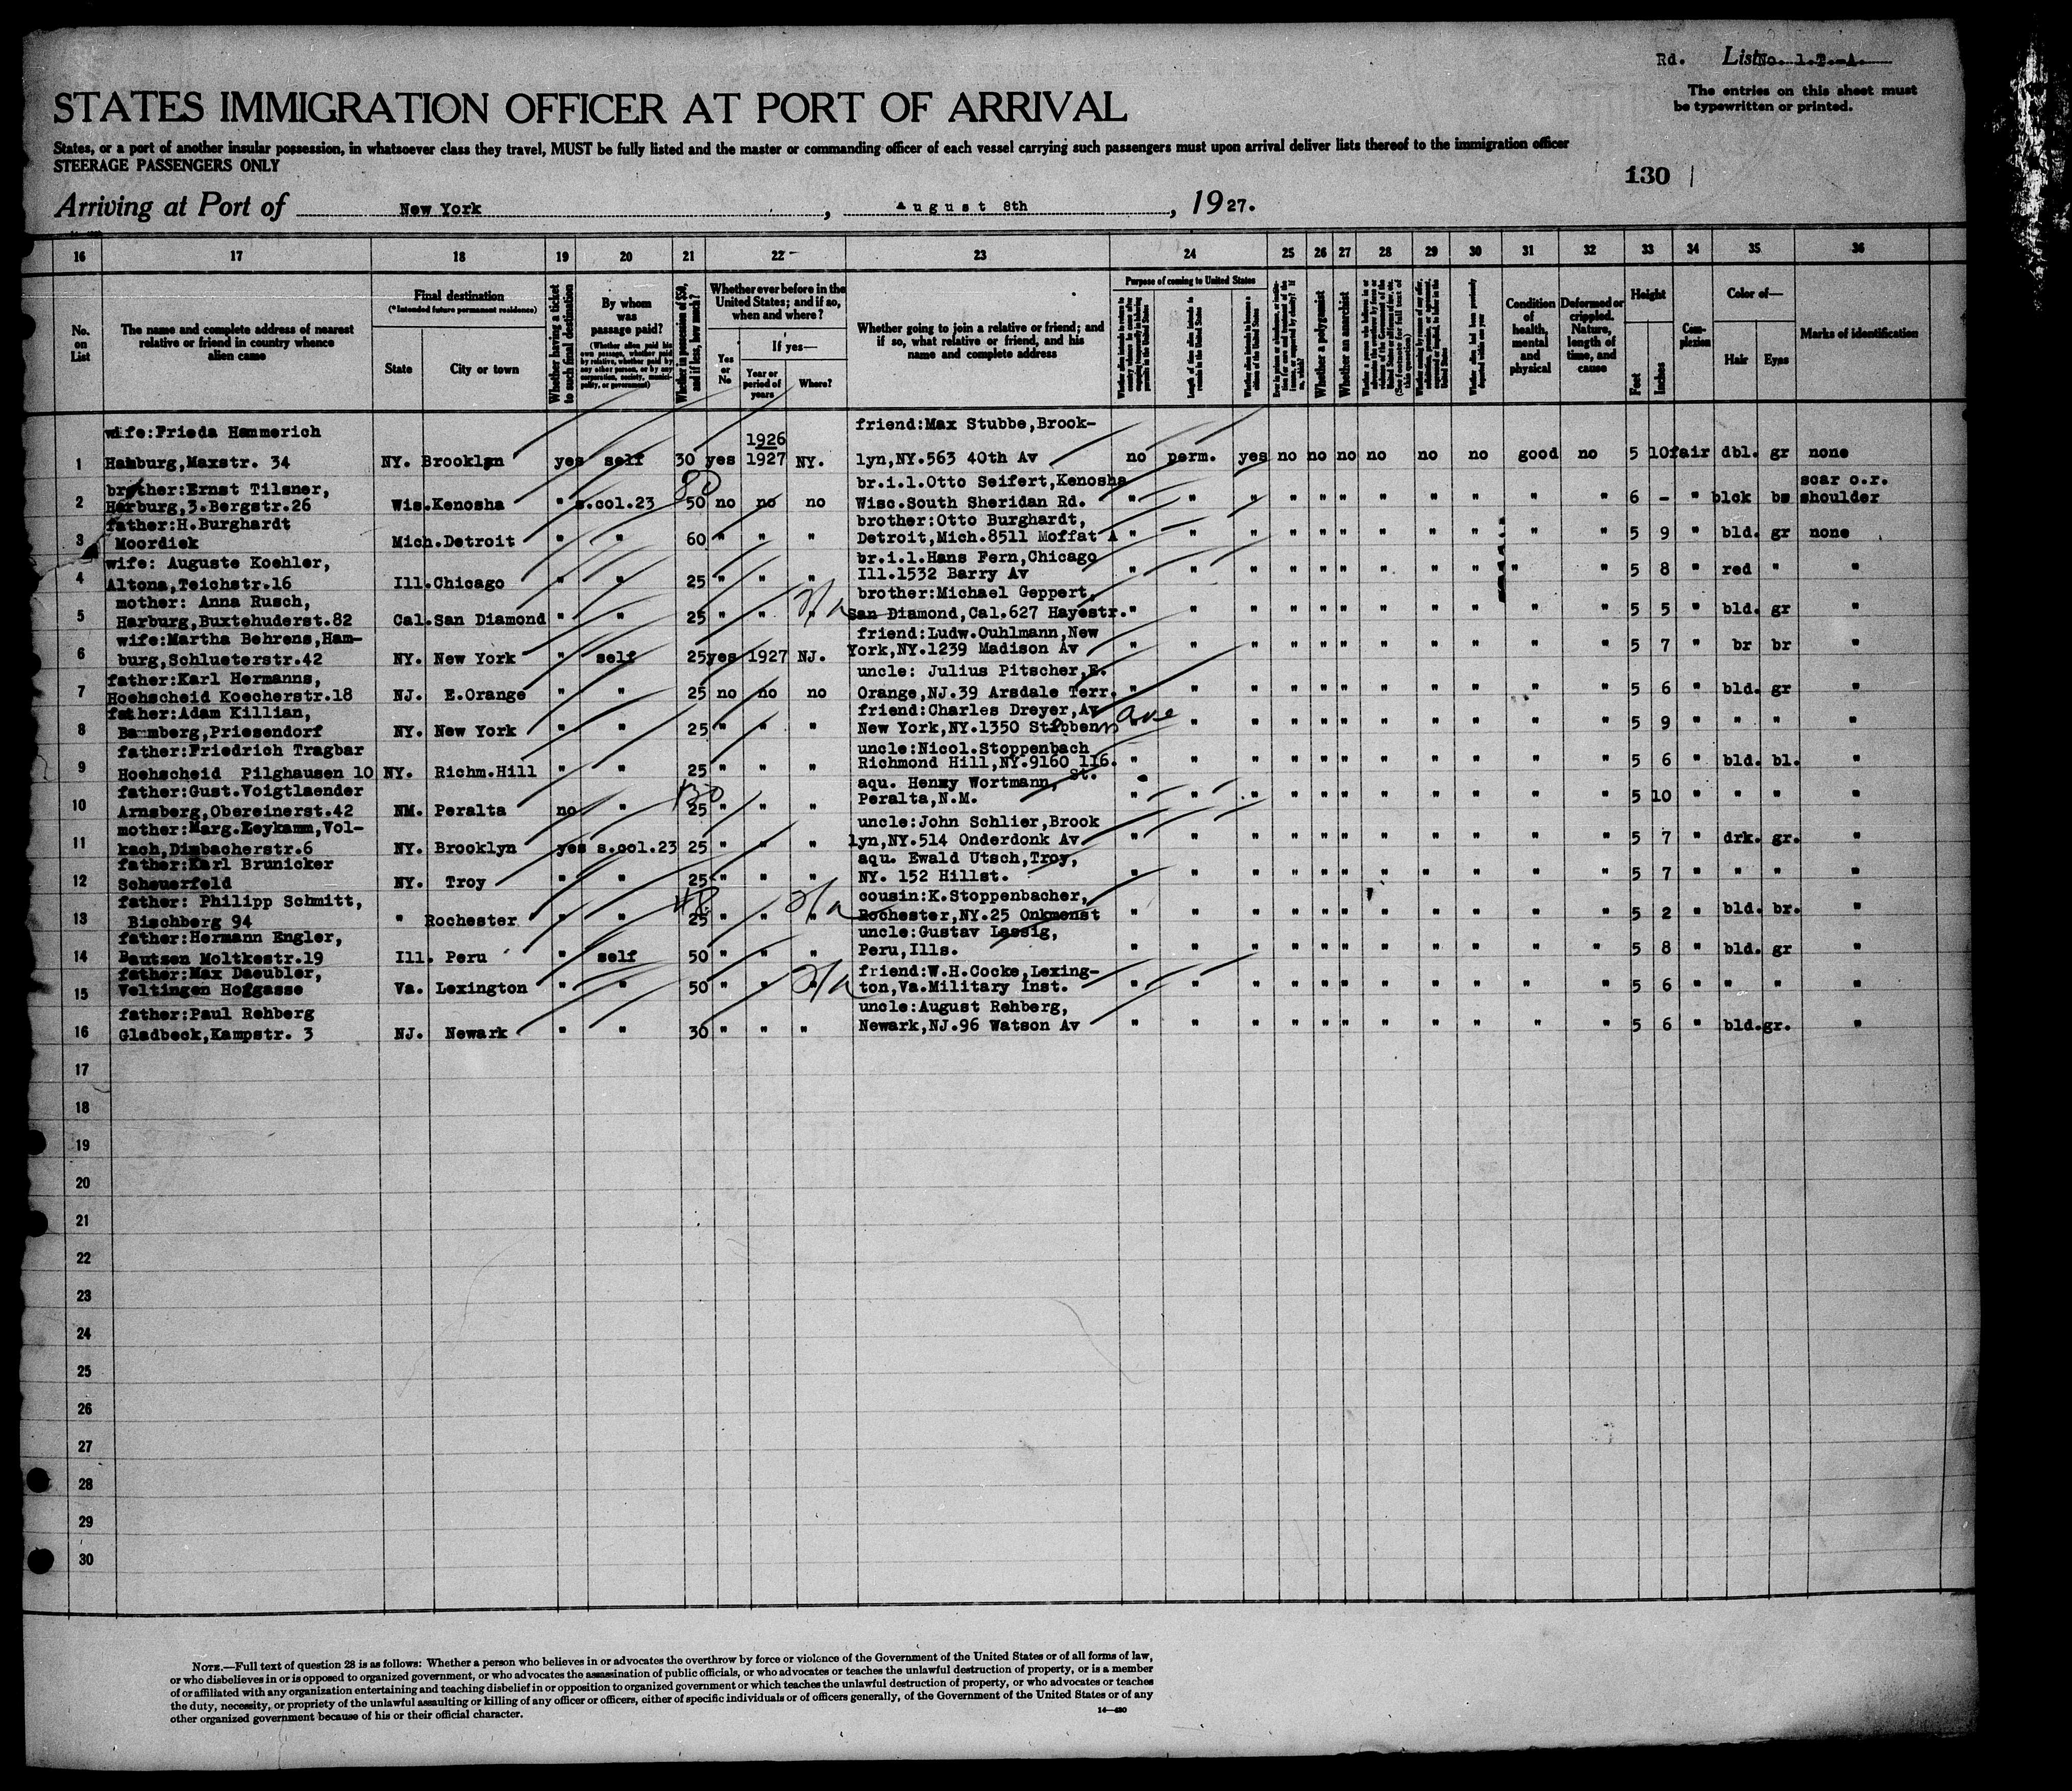 Rd. List No. 1.T.-A.
The entries on this sheet must
be typewritten or printed.
STATES IMMIGRATION OFFICER AT PORT OF ARRIVAL
States, or a port of another insular possession, in whatsoever class they travel, MUST be fully listed and the master or commanding officer of each vessel carrying such passengers must upon arrival deliver lists thereof to the immigration officer
STEERAGE PASSENGERS ONLY
130
Arriving at Port of New York, August 8th, 1927.
16 17 18 19 20 21 22 23 24 25 26 27 28 29 30 31 32 33 34 35 36
No. on List
The name and complete address of nearest relative or friend in country whence alien came
Final destination
(*Intended future permanent residence)
State
City or town
Whether having a ticket to such final destination
By whom was passage paid?
(Whether alien paid his own passage, whether paid by relative, whether paid by any other person, or by any corporation, society, municipality, or government)
Whether in possession of $50, and if less, how much?
Whether ever before in the United States; and if so, when and where?
Yes or No
If yes—
Year or period of years
Where?
Whether going to join a relative or friend; and if so, what relative or friend, and his name and complete address
Purpose of coming to United States
Whether a polygamist
Whether an anarchist
Condition of health, mental and physical
Deformed or crippled. Nature, length of time, and cause
Height
Feet
Inches
Complexion
Color of—
Hair
Eyes
Marks of identification
wife:Frieda Hammerich friend:Max Stubbe,Brook-
1926
1 Hamburg,Maxstr. 34 NY. Brooklyn yes self 30 yes 1927 NY. lyn,NY.563 40th Av no perm. yes no no no no no no good no 5 10 fair dbl. gr none
brother:Ernst Tilsner, 80 br.i.l.Otto Seifert,Kenosha scar o.r.
2 Harburg,3.Bergstr.26 Wis.Kenosha " s.col.23 50 no no no Wisc.South Sheridan Rd. " " " " " " " " " " " 6 - " blck bs shoulder
father:H.Burghardt brother:Otto Burghardt,
3 Moordiek Mich.Detroit " " 60 " " " Detroit,Mich.8511 Moffat A " " " " " " " " " " " 5 9 " bld. gr none
wife: Auguste Koehler, br.i.l.Hans Fern,Chicago
4 Altona,Teichstr.16 Ill.Chicago " " 25 " " " Ill.1532 Barry Av " " " " " " " " " " " 5 8 " red " "
mother: Anna Rusch, brother:Michael Geppert,
5 Harburg,Buxtehuderst.82 Cal.San Diamond " " 25 " " " San Diamond,Cal.627 Hayestr. " " " " " " " " " " " 5 5 " bld. gr "
wife:Martha Behrens,Ham- friend:Ludw.Ouhlmann,New
6 burg,Schlueterstr.42 NY. New York " self 25 yes 1927 NJ. York,NY.1239 Madison Av " " " " " " " " " " " 5 7 " br br "
father:Karl Hermanns, uncle: Julius Pitscher,E.
7 Hoehscheid Koecherstr.18 NJ. E.Orange " " 25 no no no Orange,NJ.39 Arsdale Terr. " " " " " " " " " " " 5 6 " bld. gr "
father:Adam Killian, friend:Charles Dreyer,Av ave
8 Bamberg,Priesendorf NY. New York " " 25 " " " New York,NY.1350 Stebbens " " " " " " " " " " 5 9 " " " "
father:Friedrich Tragbar uncle:Nicol.Stoppenbach
9 Hoehscheid Pilghausen 10 NY. Richm.Hill " " 25 " " " Richmond Hill,NY.9160 116. " " " " " " " " " " 5 6 " bld. bl. "
father:Gust.Voigtlaender 130 aqu. Henry Wortmann, St.
10 Arnsberg,Obereinerst.42 NM. Peralta no " 25 " " " Peralta,N.M. " " " " " " " " " " " 5 10 " " " "
mother:Marg.Keykamm,Vol- uncle:John Schlier,Brook
11 kach,Dimbacherstr.6 NY. Brooklyn yes s.col.23 25 " " " lyn,NY.514 Onderdonk Av " " " " " " " " " " " 5 7 " drk. gr. "
father:Karl Brunicker aqu. Ewald Utsch,Troy,
12 Scheuerfeld NY. Troy " " 25 " " " NY. 152 Hillst. " " " " " " " " " " " 5 7 " " " "
father: Philipp Schmitt, 48 cousin:K.Stoppenbacher,
13 Bischberg 94 " Rochester " " 25 " " " Rochester,NY.25 Onkmonst " " " " " " " " " " " 5 2 " bld. br. "
father:Hermann Engler, uncle:Gustav Lassig,
14 Bautzen Moltkestr.19 Ill. Peru " self 50 " " " Peru,Ills. " " " " " " " " " " " 5 8 " bld. gr "
father:Max Daeubler, friend:W.H.Cocke,Lexing-
15 Veltingen Hofgasse Va. Lexington " " 50 " " " ton,Va.Military Inst. " " " " " " " " " " " 5 6 " " " "
father:Paul Rehberg uncle:August Rehberg,
16 Gladbeck,Kampstr. 3 NJ. Newark " " 30 " " " Newark,NJ.96 Watson Av " " " " " " " " " " " 5 6 " bld. gr. "
17
18
19
20
21
22
23
24
25
26
27
28
29
30
NOTE.—Full text of question 28 is as follows: Whether a person who believes in or advocates the overthrow by force or violence of the Government of the United States or of all forms of law,
or who disbelieves in or is opposed to organized government, or who advocates the assassination of public officials, or who advocates or teaches the unlawful destruction of property, or is a member
of or affiliated with any organization entertaining and teaching disbelief in or opposition to organized government or which teaches the unlawful destruction of property, or who advocates or teaches
the duty, necessity, or propriety of the unlawful assaulting or killing of any officer or officers, either of specific individuals or of officers generally, of the Government of the United States or of any
other organized government because of his or their official character.
14—430